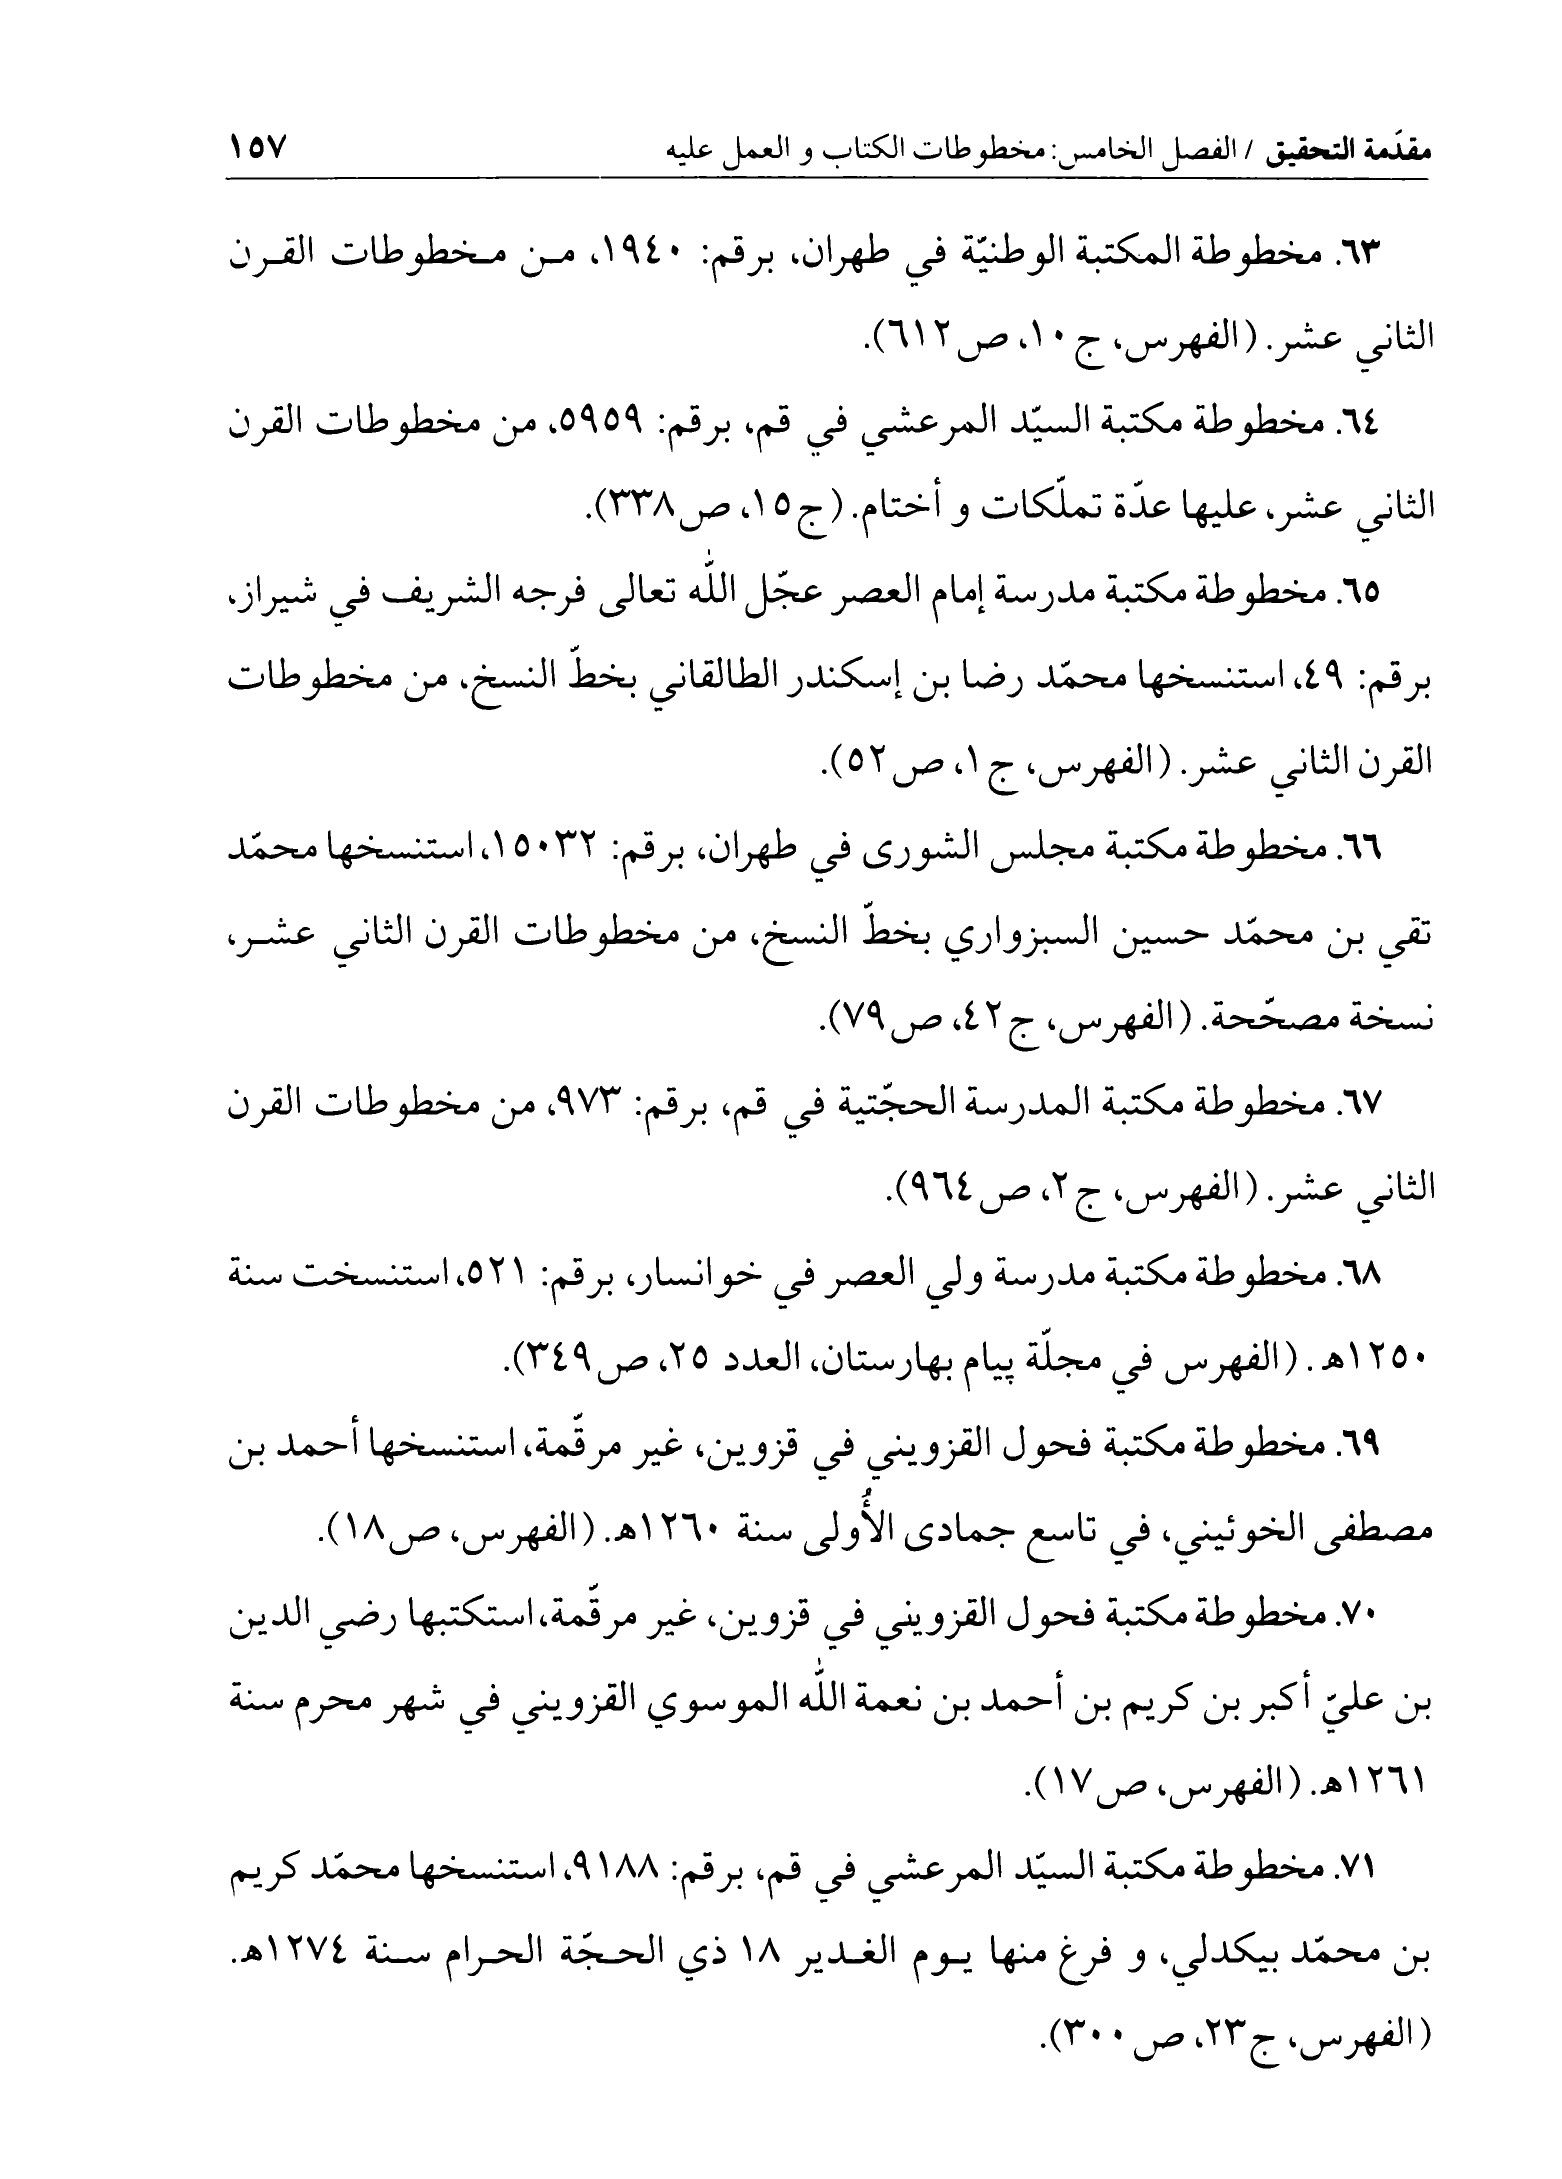 مقدّمة التحقيق / الفصل الخامس: مخطوطات الكتاب و العمل عليه ١٥٧
٦٣. مخطوطة المكتبة الوطنيّة في طهران، برقم: ١٩٤٠، مـن مـخطوطات القـرن
الثاني عشر. (الفهرس، ج١٠، ص٦١٢).
٦٤. مخطوطة مكتبة السيّد المرعشي في قم، برقم: ٥٩٥٩، من مخطوطات القرن
الثاني عشر، عليها عدّة تملّكات و أختام. (ج١٥، ص٣٣٨).
٦٥. مخطوطة مكتبة مدرسة إمام العصر عجّل اللّٰه تعالى فرجه الشريف في شيراز،
برقم: ٤٩، استنسخها محمّد رضا بن إسكندر الطالقاني بخطّ النسخ، من مخطوطات
القرن الثاني عشر. (الفهرس، ج١، ص٥٢).
٦٦. مخطوطة مكتبة مجلس الشورى في طهران، برقم: ١٥٠٣٢، استنسخها محمّد
تقي بن محمّد حسين السبزواري بخطّ النسخ، من مخطوطات القرن الثاني عشـر،
نسخة مصحّحة. (الفهرس، ج٤٢، ص٧٩).
٦٧. مخطوطة مكتبة المدرسة الحجّتية في قم، برقم: ٩٧٣، من مخطوطات القرن
الثاني عشر. (الفهرس، ج٢، ص٩٦٤).
٦٨. مخطوطة مكتبة مدرسة ولي العصر في خوانسار، برقم: ٥٢١، استنسخت سنة
١٢٥٠هـ . (الفهرس في مجلّة پيام بهارستان، العدد ٢٥، ص٣٤٩).
٦٩. مخطوطة مكتبة فحول القزويني في قزوين، غير مرقّمة، استنسخها أحمد بن
مصطفى الخوئيني، في تاسع جمادى الأُولى سنة ١٢٦٠هـ. (الفهرس، ص١٨).
٧٠. مخطوطة مكتبة فحول القزويني في قزوين، غير مرقّمة، استكتبها رضي الدين
بن عليّ أكبر بن كريم بن أحمد بن نعمة اللّٰه الموسوي القزويني في شهر محرم سنة
١٢٦١هـ. (الفهرس، ص١٧).
٧١. مخطوطة مكتبة السيّد المرعشي في قم، برقم: ٩١٨٨، استنسخها محمّد كريم
بن محمّد بيكدلي، و فرغ منها يـوم الغـدير ١٨ ذي الحـجّة الحـرام سـنة ١٢٧٤هـ.
(الفهرس، ج٢٣، ص٣٠٠).